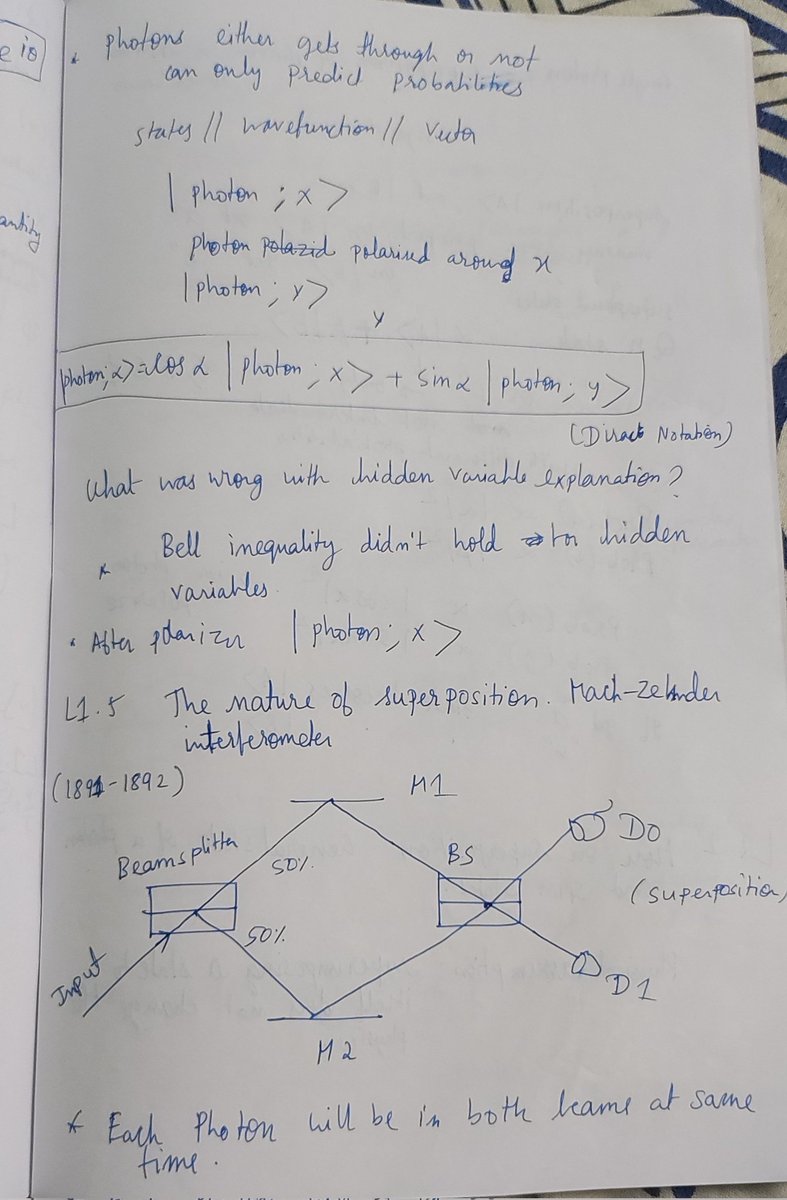 e is
antity
* photons either gets through or not
can only predict probabilities
states // wavefunction // vector
| photon ; x >
photon polazid polarised around x
| photon ; y >
y
|photon; α> = cos α | photon ; x > + sin α | photon ; y >
(Diract Notation)
What was wrong with hidden variable explanation?
* Bell inequality didn't hold for hidden
variables.
* After polarizer | photon ; x >
L1.5 The nature of superposition. Mach-Zehnder
interferometer
(1891-1892)
M1
D0
Beamsplitter
50%
BS
(superposition)
50%
Input
D1
M2
* Each Photon will be in both beams at same
time.